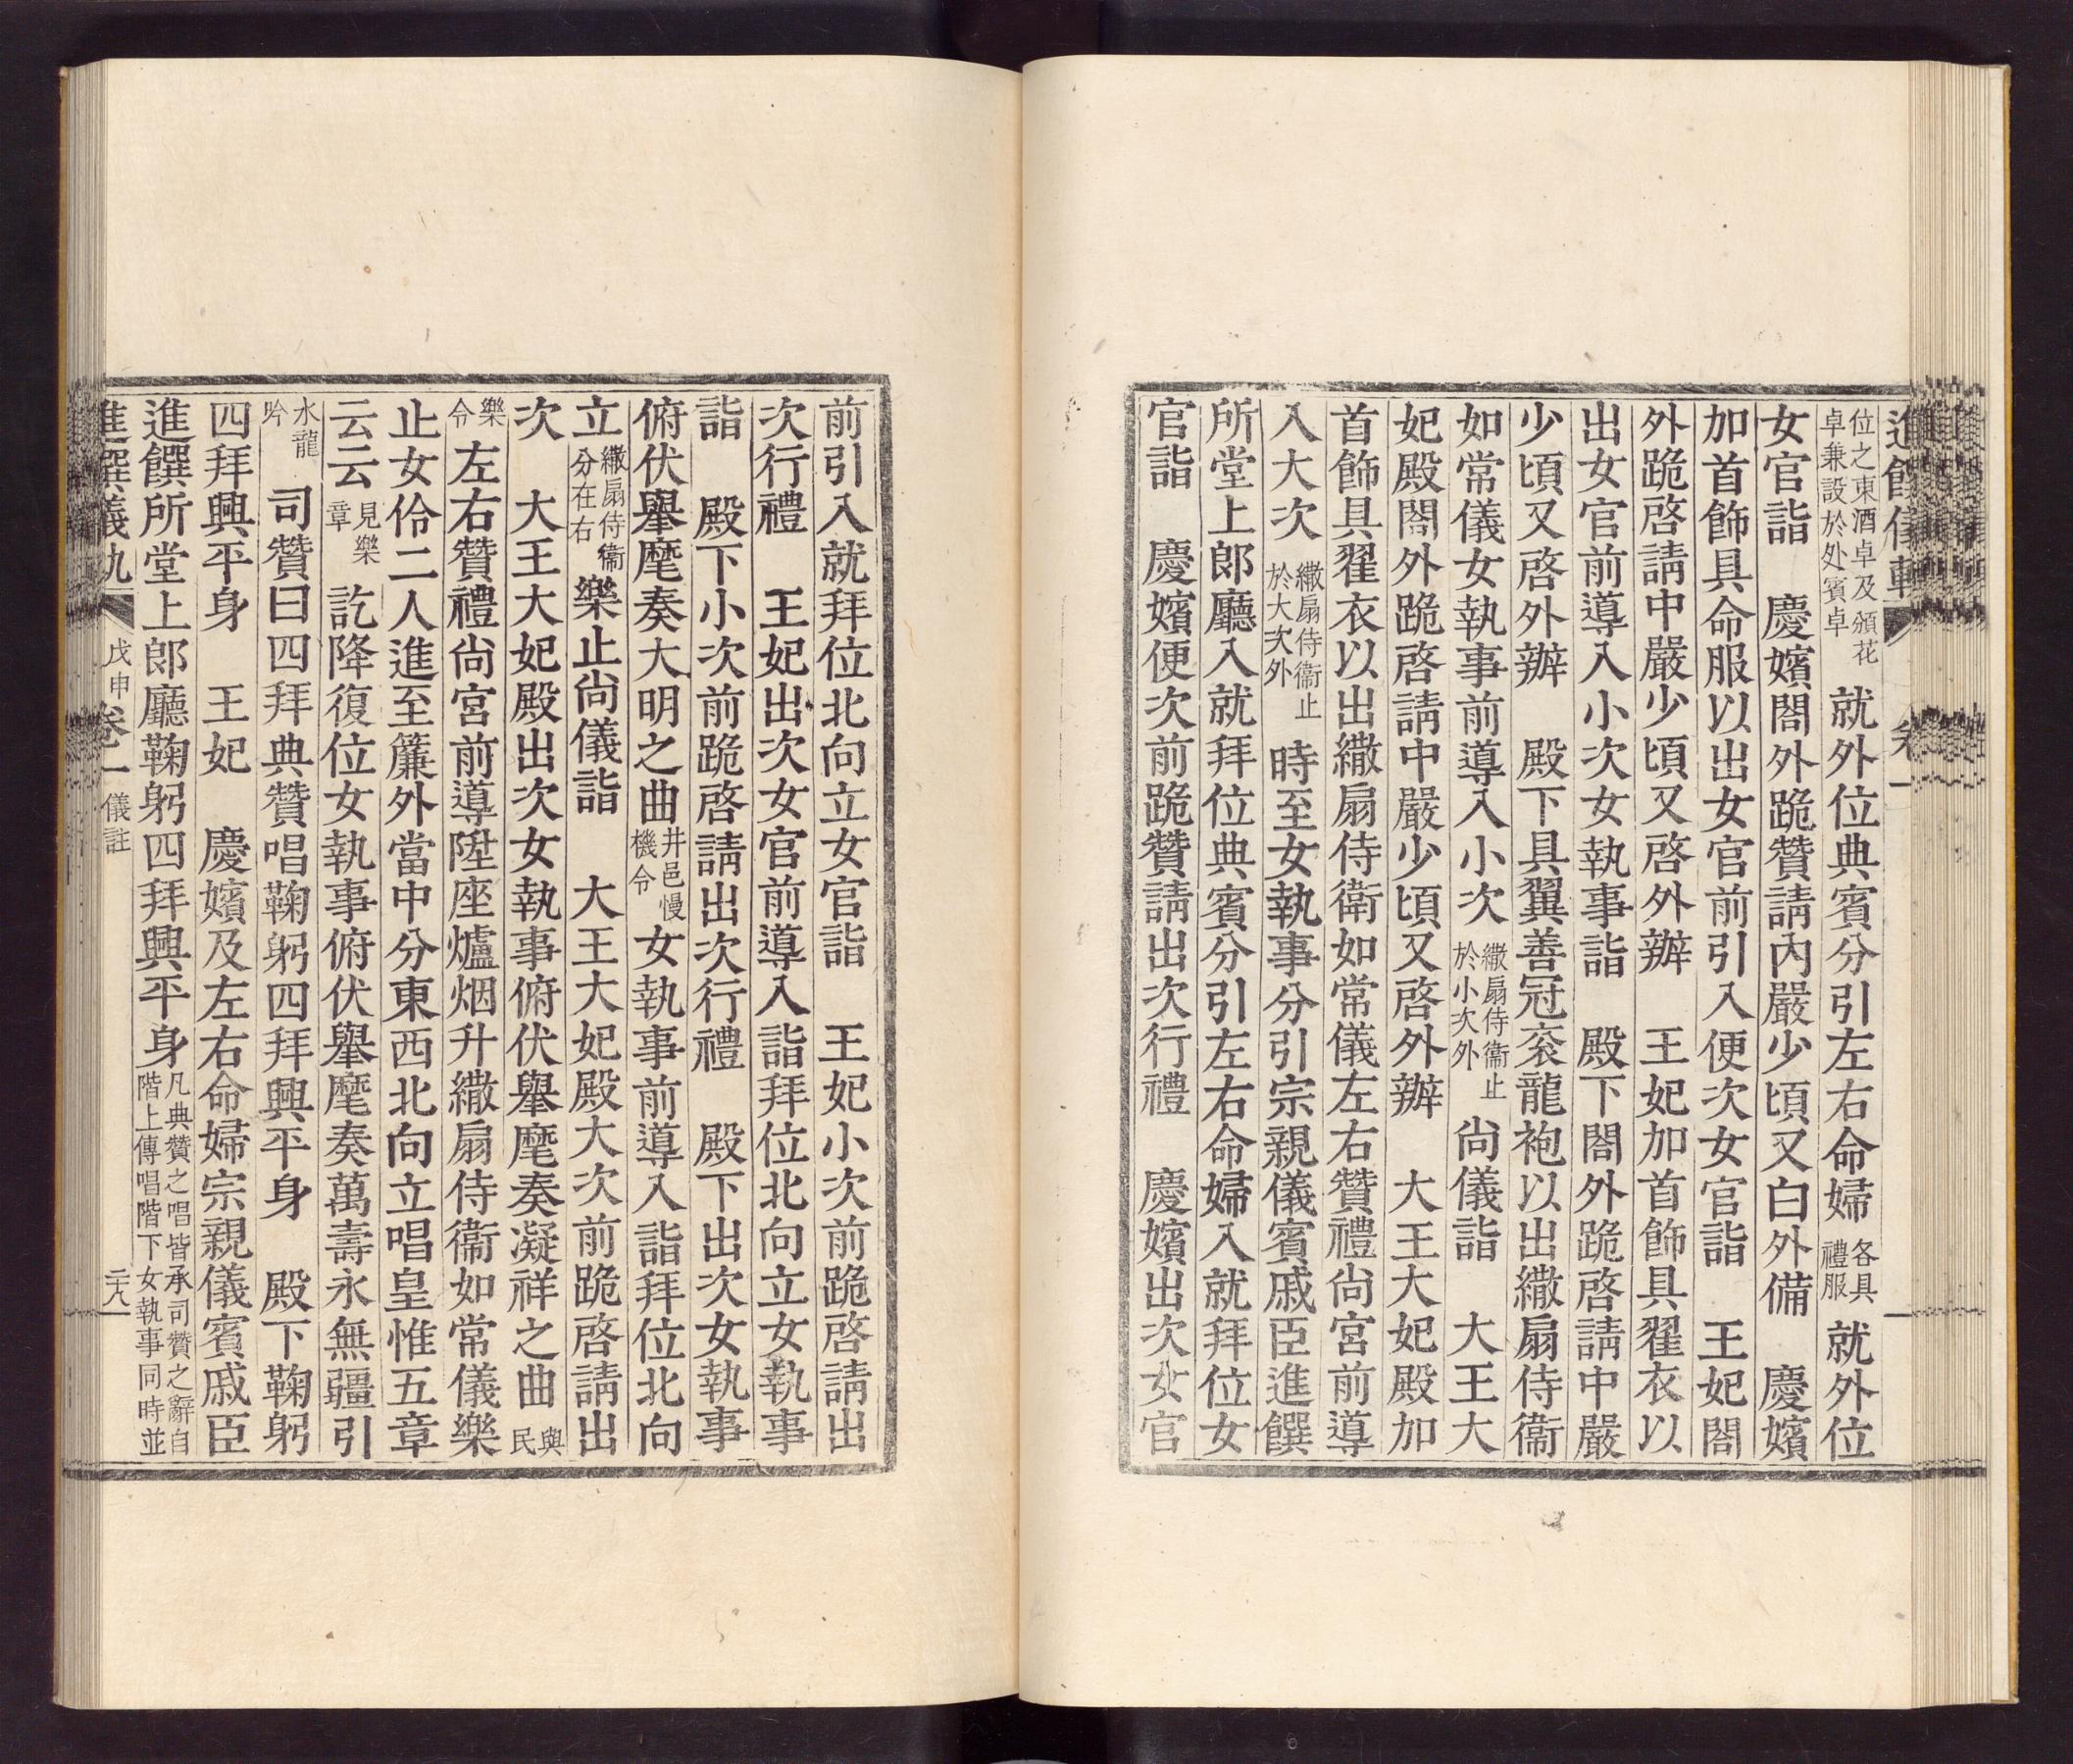 進饌儀軌 卷一
位之東酒卓及頒花卓兼設於外賓卓 就外位典賓分引左右命婦各具禮服就外位
女官詣 慶嬪閤外跪贊請內嚴少頃又白外備 慶嬪
加首飾具命服以出女官前引入便次女官詣 王妃閤
外跪啓請中嚴少頃又啓外辦 王妃加首飾具翟衣以
出女官前導入小次女執事詣 殿下閤外跪啓請中嚴
少頃又啓外辦 殿下具翼善冠袞龍袍以出繖扇侍衞
如常儀女執事前導入小次繖扇侍衞止於小次外 尙儀詣 大王大
妃殿閤外跪啓請中嚴少頃又啓外辦 大王大妃殿加
首飾具翟衣以出繖扇侍衛如常儀左右贊禮尙宮前導
入大次繖扇侍衞止於大次外 時至女執事分引宗親儀賓戚臣進饌
所堂上郎廳入就拜位典賓分引左右命婦入就拜位女
官詣 慶嬪便次前跪贊請出次行禮 慶嬪出次女官
前引入就拜位北向立女官詣 王妃小次前跪啓請出
次行禮 王妃出次女官前導入詣拜位北向立女執事
詣 殿下小次前跪啓請出次行禮 殿下出次女執事
俯伏擧麾奏大明之曲井邑慢機令女執事前導入詣拜位北向
立繖扇侍衞分在右樂止尙儀詣 大王大妃殿大次前跪啓請出
次 大王大妃殿出次女執事俯伏擧麾奏凝祥之曲與民
樂令左右贊禮尙宮前導陞座爐烟升繖扇侍衞如常儀樂
止女伶二人進至簾外當中分東西北向立唱皇惟五章
云云見樂章 訖降復位女執事俯伏擧麾奏萬壽永無疆引
水龍吟 司贊曰四拜典贊唱鞠躬四拜興平身 殿下鞠躬
四拜興平身 王妃 慶嬪及左右命婦宗親儀賓戚臣
進饌所堂上郎廳鞠躬四拜興平身凡典贊之唱皆承司贊之辭自階上傳唱階下女執事同時並
進饌儀軌 戊申 卷一 儀註 二十八